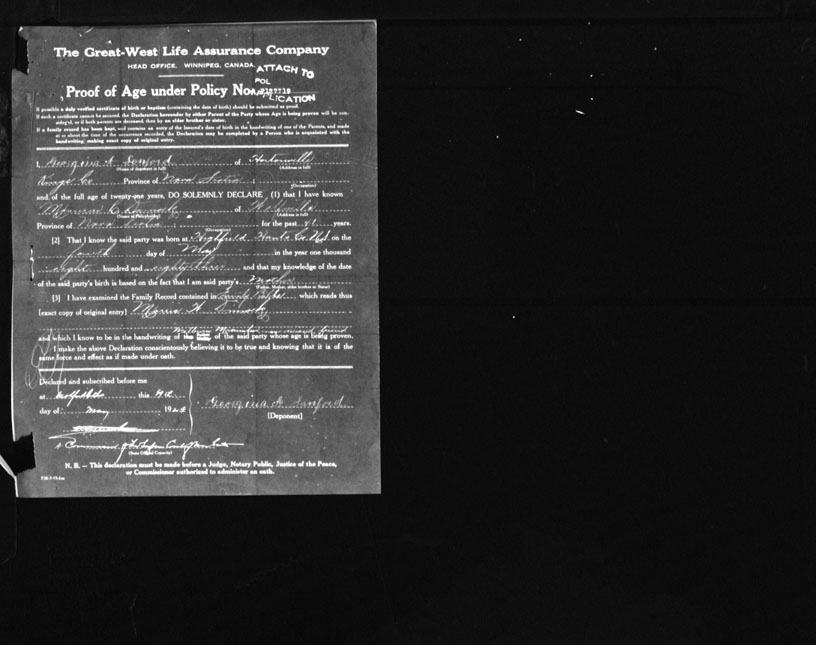 The Great-West Life Assurance Company
HEAD OFFICE, WINNIPEG, CANADA
ATTACH TO
POL
Proof of Age under Policy No.
LICATION
If possible a duly verified certificate of birth or baptism (containing the date of birth) should be submitted as proof.
If such a certificate cannot be secured, the Declaration hereunder by either Parent of the Party whose Age is being proven will be considered, or if both parents are deceased, then by an elder brother or sister.
If a family record has been kept, and contains an entry of the Insured's date of birth in the handwriting of one of the Parents, and made at or about the time of the occurrence recorded, the Declaration may be completed by a Person who is acquainted with the handwriting, making exact copy of original entry.
I, Georgina A Sanford of Hortonville
(Name of deponent in full) (Address in full)
Kings Co Province of Nova Scotia ;
(Occupation)
and of the full age of twenty-one years, DO SOLEMNLY DECLARE, (1) that I have known
of Wolfville
(Name of Policyholder) (Address in full)
Province of Nova Scotia ; for the past 41 years.
(Occupation)
[2] That I know the said party was born at Highfield Hants Co N.S. on the
fourth day of May in the year one thousand
eight hundred and eighty three and that my knowledge of the date
of the said party's birth is based on the fact that I am said party's Mother
(Father, Mother, elder brother or Sister)
[3] I have examined the Family Record contained in Family which reads thus
[exact copy of original entry]
and which I know to be in the handwriting of the of the said party whose age is being proven.
I make the above Declaration conscientiously believing it to be true and knowing that it is of the
same force and effect as if made under oath.
Declared and subscribed before me
at this
day of May 192
Georgina A Sanford
[Deponent]
A Commissioner
(State Official Capacity)
N. B. — This declaration must be made before a Judge, Notary Public, Justice of the Peace,
or Commissioner authorized to administer an oath.